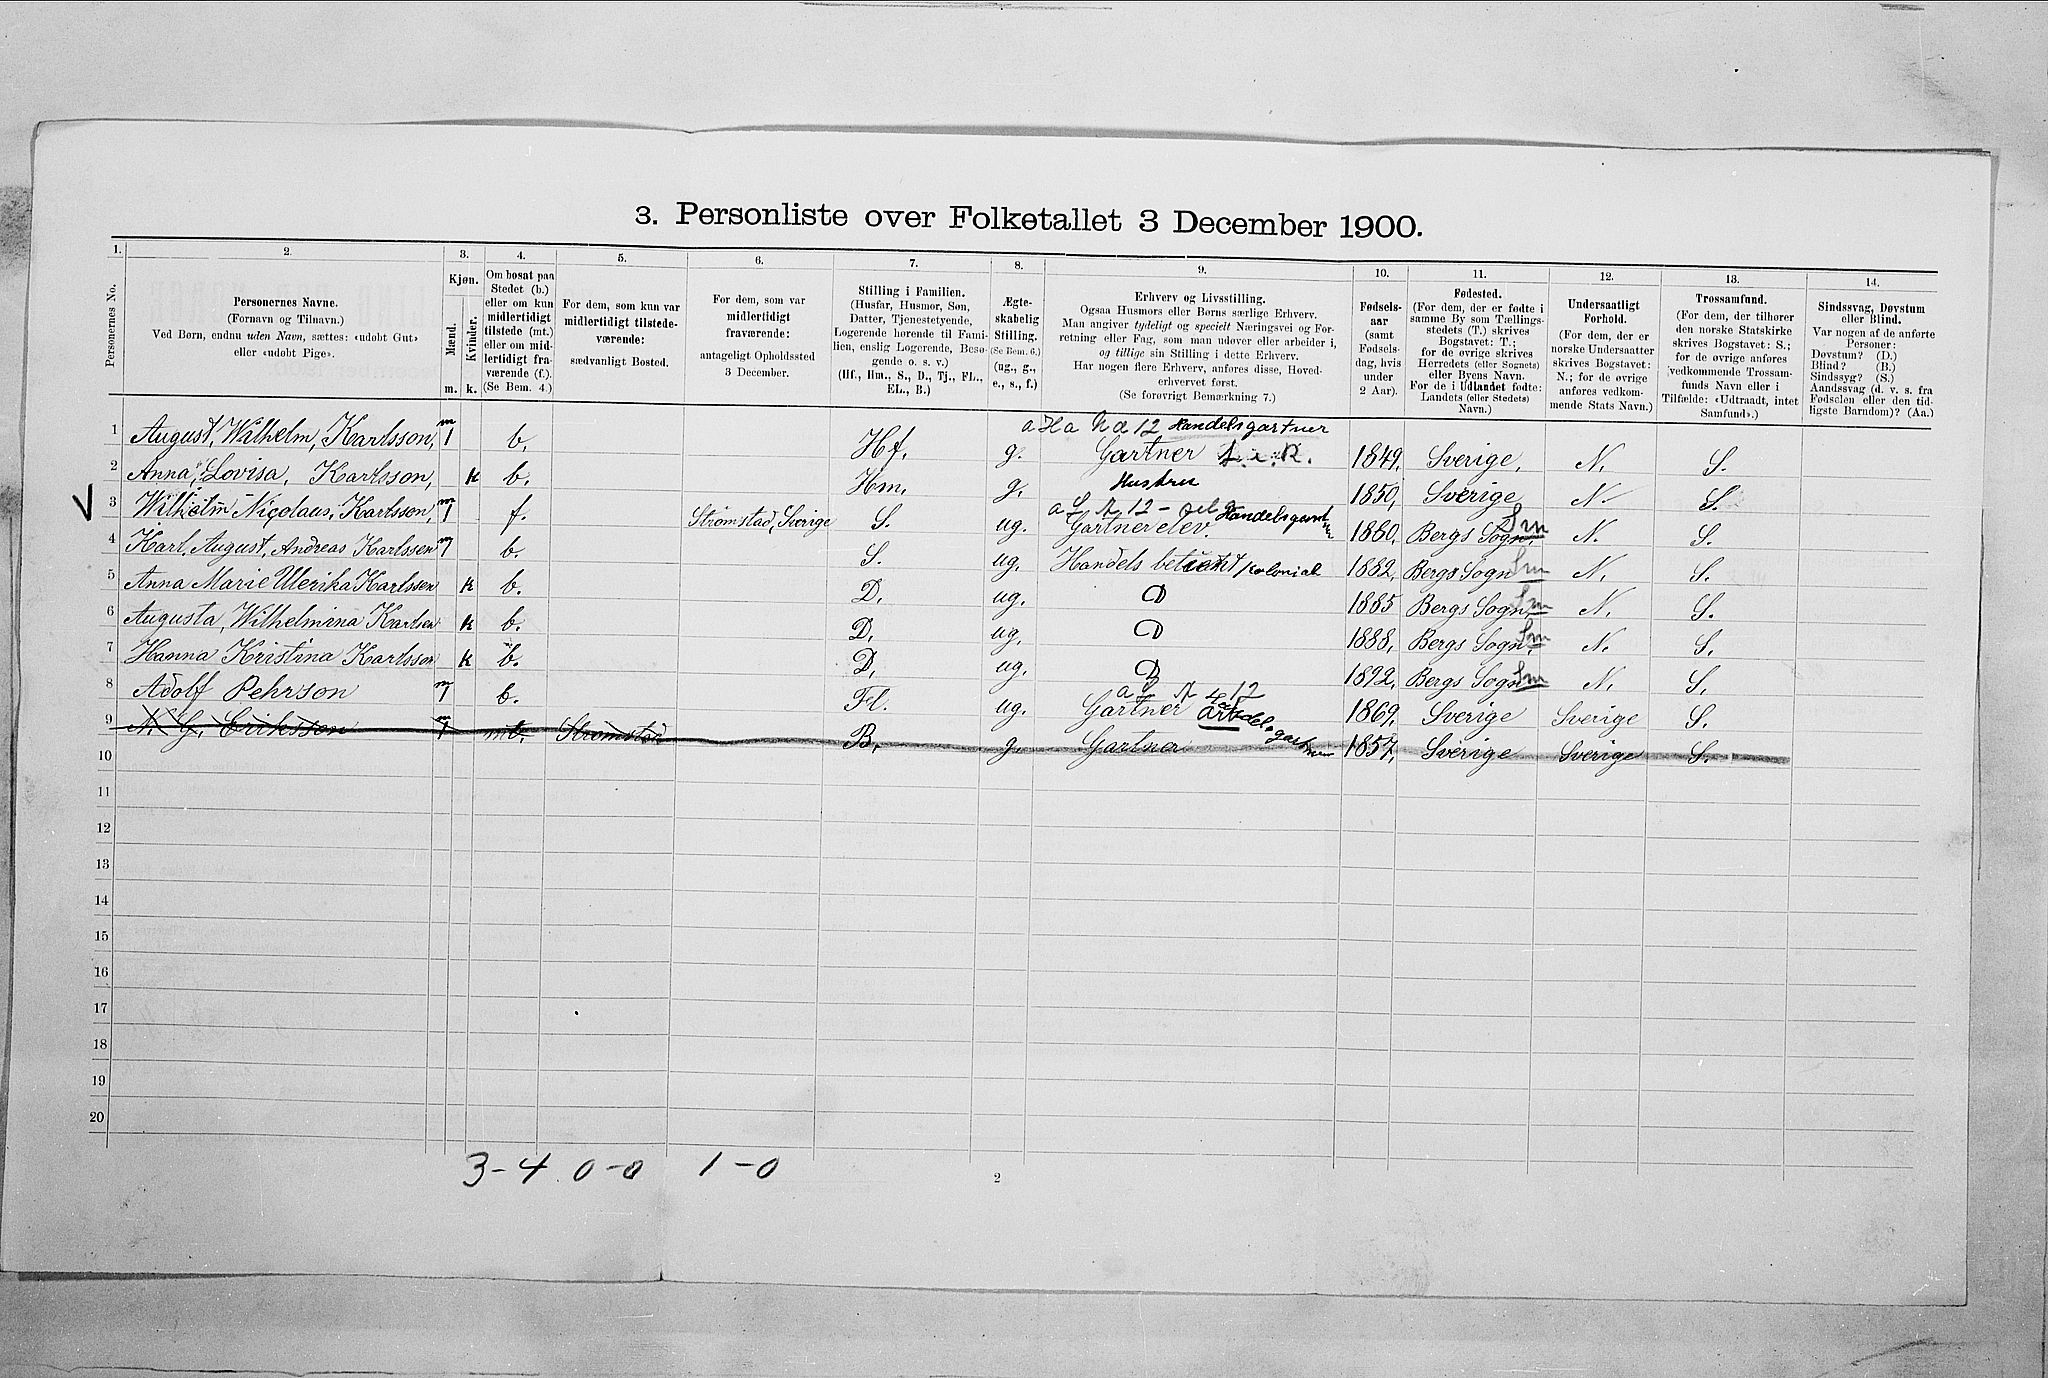 3. Personliste over Folketallet 3 December 1900.
1. 2. 3. 4. 5. 6. 7. 8. 9. 10. 11. 12. 13. 14.
Personernes No.
Personernes Navne.
(Fornavn og Tilnavn.)
Ved Børn, endnu uden Navn, sættes: «udøbt Gut»
eller «udøbt Pige».
Kjøn.
Mænd.
Kvinder.
m. k.
Om bosat paa
Stedet (b.)
eller om kun
midlertidigt
tilstede (mt.)
eller om mid-
lertidigt fra-
værende (f.).
(Se Bem. 4.)
For dem, som kun var
midlertidigt tilstede-
værende:
sædvanligt Bosted.
For dem, som var
midlertidigt
fraværende:
antageligt Opholdssted
3 December.
Stilling i Familien.
(Husfar, Husmor, Søn,
Datter, Tjenestetyende,
Logerende hørende til Fami-
lien, enslig Logerende, Besø-
gende o. s. v.)
(Hf., Hm., S., D., Tj., FL.,
EL., B.)
Ægte-
skabelig
Stilling.
(Se Bem. 6.)
(ug., g.,
e., s., f.)
Erhverv og Livsstilling.
Ogsaa Husmors eller Børns særlige Erhverv.
Man angiver tydeligt og specielt Næringsvei og For-
retning eller Fag, som man udøver eller arbeider i,
og tillige sin Stilling i dette Erhverv.
Har nogen flere Erhverv, anføres disse, Hoved-
erhvervet først.
(Se forøvrigt Bemærkning 7.)
Fødsels-
aar
(samt
Fødsels-
dag, hvis
under
2 Aar).
Fødested.
(For dem, der er fødte i
samme By som Tællings-
stedets (T.) skrives
Bogstavet: T.;
for de øvrige skrives
Herredets (eller Sognets)
eller Byens Navn.
For de i Udlandet fødte:
Landets (eller Stedets)
Navn.)
Undersaatligt
Forhold.
(For dem, der er
norske Undersaatter
skrives Bogstavet:
N.; for de øvrige
anføres vedkom-
mende Stats Navn.)
Trossamfund.
(For dem, der tilhører
den norske Statskirke
skrives Bogstavet: S.;
for de øvrige anføres
vedkommende Trossam-
funds Navn eller i
Tilfælde: «Udtraadt, intet
Samfund».)
Sindssvag, Døvstum
eller Blind.
Var nogen af de anførte
Personer:
Døvstum? (D.)
Blind? (B.)
Sindssyg? (S.)
Aandssvag (d. v. s. fra
Fødselen eller den tid-
ligste Barndom)? (Aa.)
Handelsgartner
1 August, Wilhelm, Karlsson, m 1 b. Hf. g. Gartner 1849, Sverige, N. S.
2 Anna, Lovisa, Karlsson, k b. Hm. g. Hustru 1850, Sverige N. S.
3 Wilhelm Nicolaus, Karlsson, m 1 f. Strømstad, Sverige S. ug. Gartner elev. 1860, Bergs Sogn, Sm N. S.
4 Karl, August, Andreas Karlssen m 1 b. S. ug. Handels betjent Kolonial 1882, Bergs Sogn Sm N. S.
5 Anna Marie Ulerika Karlssen k b. D. ug. D 1885 Bergs Sogn, Sm N. S.
6 Augusta, Wilhelmina Karlsen k b. D. ug. D 1888, Bergs Sogn, Sm N. S.
7 Hanna Kristina Karlsson k b. D. ug. D 1892, Bergs Sogn Sm N. S.
8 Adolf Pehrson m 1 b. FL. ug. Gartner 1869, Sverige Sverige S.
9 N. G. Eriksson m 1 mt. Strømstad B. g. Gartner 1857, Sverige Sverige S.
10
11
12
13
14
15
16
17
18
19
20
3-4 0-0 1-0
2